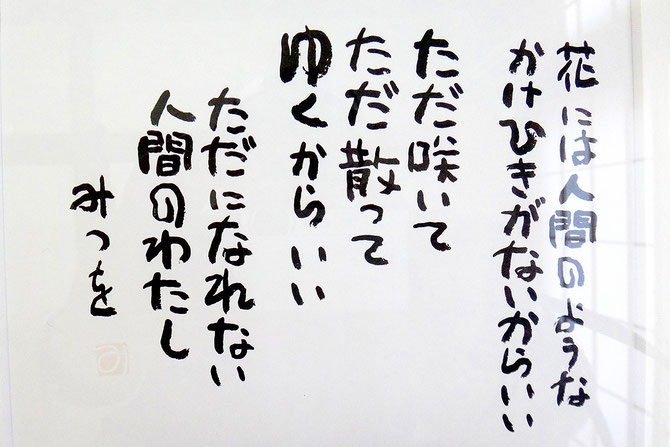 花には人間のような
かけひきがないからいい
ただ咲いて
ただ散って
ゆくからいい
ただになれない
人間のわたし
みつを